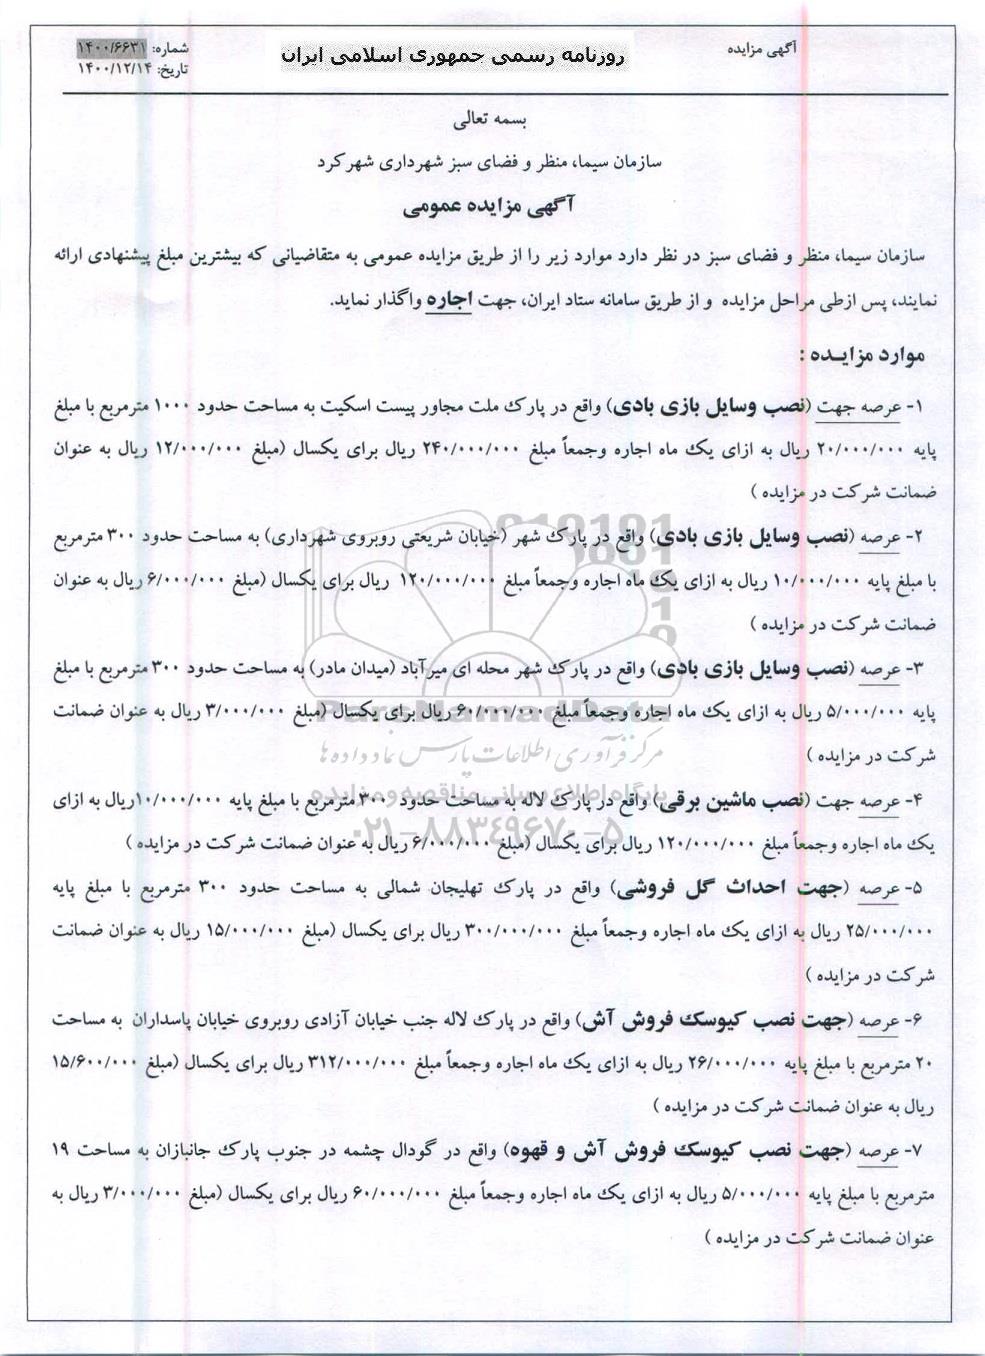 آگهی مزایده
روزنامه رسمی جمهوری اسلامی ایران
شماره: ۱۴۰۰/۶۶۳۱
تاریخ: ۱۴۰۰/۱۲/۱۴
بسمه تعالی
سازمان سیما، منظر و فضای سبز شهرداری شهرکرد
آگهی مزایده عمومی
سازمان سیما، منظر و فضای سبز در نظر دارد موارد زیر را از طریق مزایده عمومی به متقاضیانی که بیشترین مبلغ پیشنهادی ارائه
نمایند، پس ازطی مراحل مزایده و از طریق سامانه ستاد ایران، جهت اجاره واگذار نماید.
موارد مزایـده :
۱- عرصه جهت (نصب وسایل بازی بادی) واقع در پارک ملت مجاور پیست اسکیت به مساحت حدود ۱۰۰۰ مترمربع با مبلغ
پایه ۲۰/۰۰۰/۰۰۰ ریال به ازای یک ماه اجاره وجمعاً مبلغ ۲۴۰/۰۰۰/۰۰۰ ریال برای یکسال (مبلغ ۱۲/۰۰۰/۰۰۰ ریال به عنوان
ضمانت شرکت در مزایده )
۲- عرصه (نصب وسایل بازی بادی) واقع در پارک شهر (خیابان شریعتی روبروی شهرداری) به مساحت حدود ۳۰۰ مترمربع
با مبلغ پایه ۱۰/۰۰۰/۰۰۰ ریال به ازای یک ماه اجاره وجمعاً مبلغ ۱۲۰/۰۰۰/۰۰۰ ریال برای یکسال (مبلغ ۶/۰۰۰/۰۰۰ ریال به عنوان
ضمانت شرکت در مزایده )
۳- عرصه (نصب وسایل بازی بادی) واقع در پارک شهر محله ای میرآباد (میدان مادر) به مساحت حدود ۳۰۰ مترمربع با مبلغ
پایه ۵/۰۰۰/۰۰۰ ریال به ازای یک ماه اجاره وجمعاً مبلغ ۶۰/۰۰۰/۰۰۰ ریال برای یکسال (مبلغ ۳/۰۰۰/۰۰۰ ریال به عنوان ضمانت
ParsNamadData
مرکز فرآوری اطلاعات پارس نماد داده ها
شرکت در مزایده )
پایگاه اطلاع رسانی مناقصه و مزایده
۴- عرصه جهت (نصب ماشین برقی) واقع در پارک لاله به مساحت حدود ۳۰۰ مترمربع با مبلغ پایه ۱۰/۰۰۰/۰۰۰ریال به ازای
۰۲۱-۸۸۳۴۹۶۷۰-۵
یک ماه اجاره وجمعاً مبلغ ۱۲۰/۰۰۰/۰۰۰ ریال برای یکسال (مبلغ ۶/۰۰۰/۰۰۰ ریال به عنوان ضمانت شرکت در مزایده )
۵- عرصه (جهت احداث گل فروشی) واقع در پارک تهلیجان شمالی به مساحت حدود ۳۰۰ مترمربع با مبلغ پایه
۲۵/۰۰۰/۰۰۰ ریال به ازای یک ماه اجاره وجمعاً مبلغ ۳۰۰/۰۰۰/۰۰۰ ریال برای یکسال (مبلغ ۱۵/۰۰۰/۰۰۰ ریال به عنوان ضمانت
شرکت در مزایده )
۶- عرصه (جهت نصب کیوسک فروش آش) واقع در پارک لاله جنب خیابان آزادی روبروی خیابان پاسداران به مساحت
۲۰ مترمربع با مبلغ پایه ۲۶/۰۰۰/۰۰۰ ریال به ازای یک ماه اجاره وجمعاً مبلغ ۳۱۲/۰۰۰/۰۰۰ ریال برای یکسال (مبلغ ۱۵/۶۰۰/۰۰۰
ریال به عنوان ضمانت شرکت در مزایده )
۷- عرصه (جهت نصب کیوسک فروش آش و قهوه) واقع در گودال چشمه در جنوب پارک جانبازان به مساحت ۱۹
مترمربع با مبلغ پایه ۵/۰۰۰/۰۰۰ ریال به ازای یک ماه اجاره وجمعاً مبلغ ۶۰/۰۰۰/۰۰۰ ریال برای یکسال (مبلغ ۳/۰۰۰/۰۰۰ ریال به
عنوان ضمانت شرکت در مزایده )